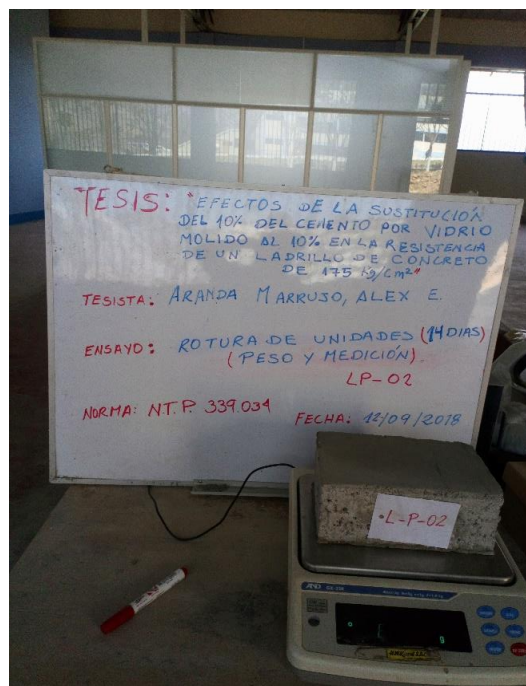 TESIS: "EFECTOS DE LA SUSTITUCIÓN
DEL 10% DEL CEMENTO POR VIDRIO
MOLIDO AL 10% EN LA RESISTENCIA
DE UN LADRILLO DE CONCRETO
DE 175 Kg/Cm²"
TESISTA: ARANDA MARRUJO, ALEX E.
ENSAYO: ROTURA DE UNIDADES (14 DIAS)
(PESO Y MEDICIÓN).
LP-02
NORMA: N.T.P. 339.034
FECHA: 12/09/2018
L-P-02
AND
g